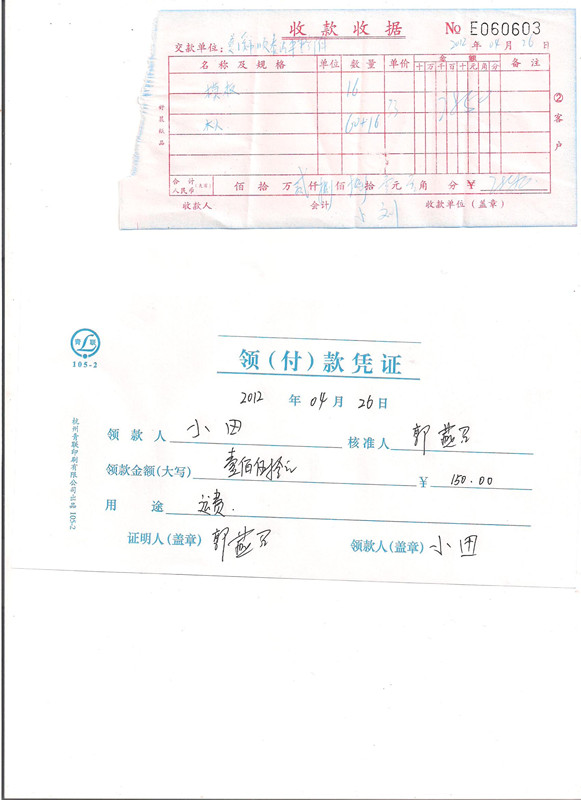 收款收据 № E060603
交款单位： 2012 年 04 月 26 日
名称及规格 单位 数量 单价 金额 备注
十 万 千 百 十 元 角 分
模板 16
木人 60+16
合计人民币(大写) 佰 拾 万 贰 仟 捌 佰 拾 元 角 分 ￥
收款人 会计 小刘 收款单位(盖章)
②客户
领（付）款凭证
青联
105-2
2012 年 04 月 26 日
领款人 小田 核准人 郭燕
领款金额(大写) 壹佰伍拾元 ￥ 150.00
用途 运费.
证明人(盖章) 郭燕 领款人(盖章) 小田
杭州青联印刷有限公司出品 105-2